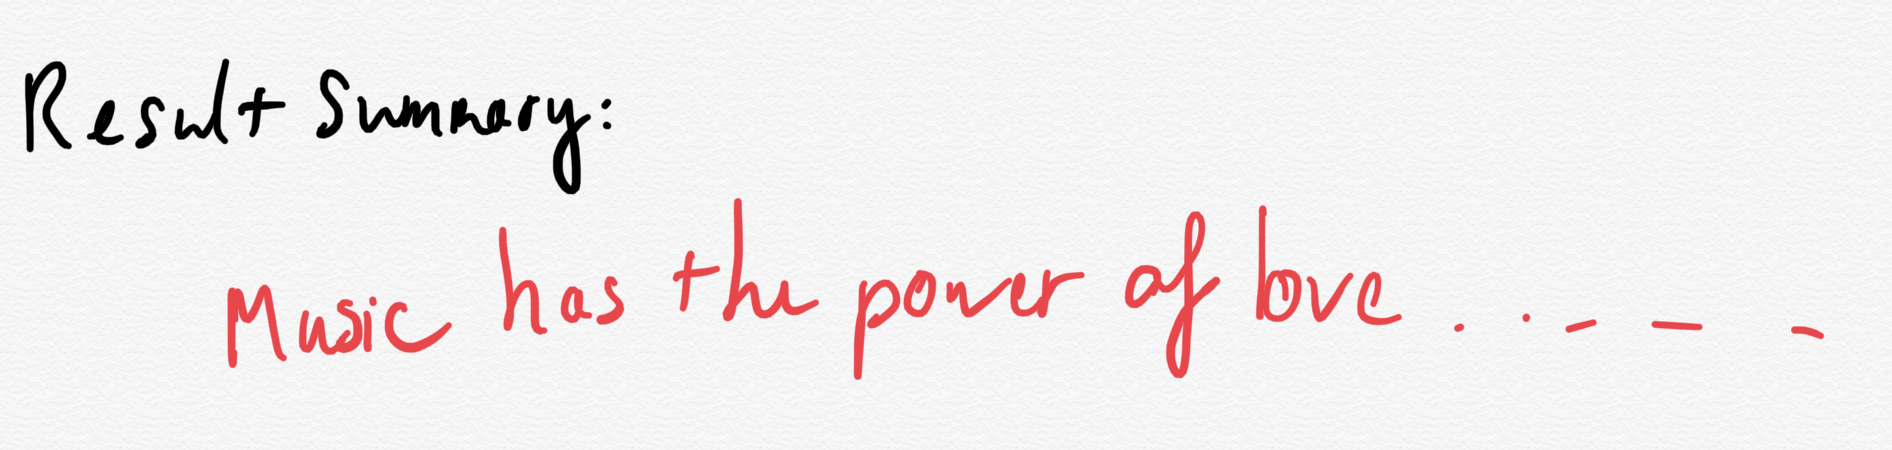 Result Summary:
Music has the power of love . . - - -